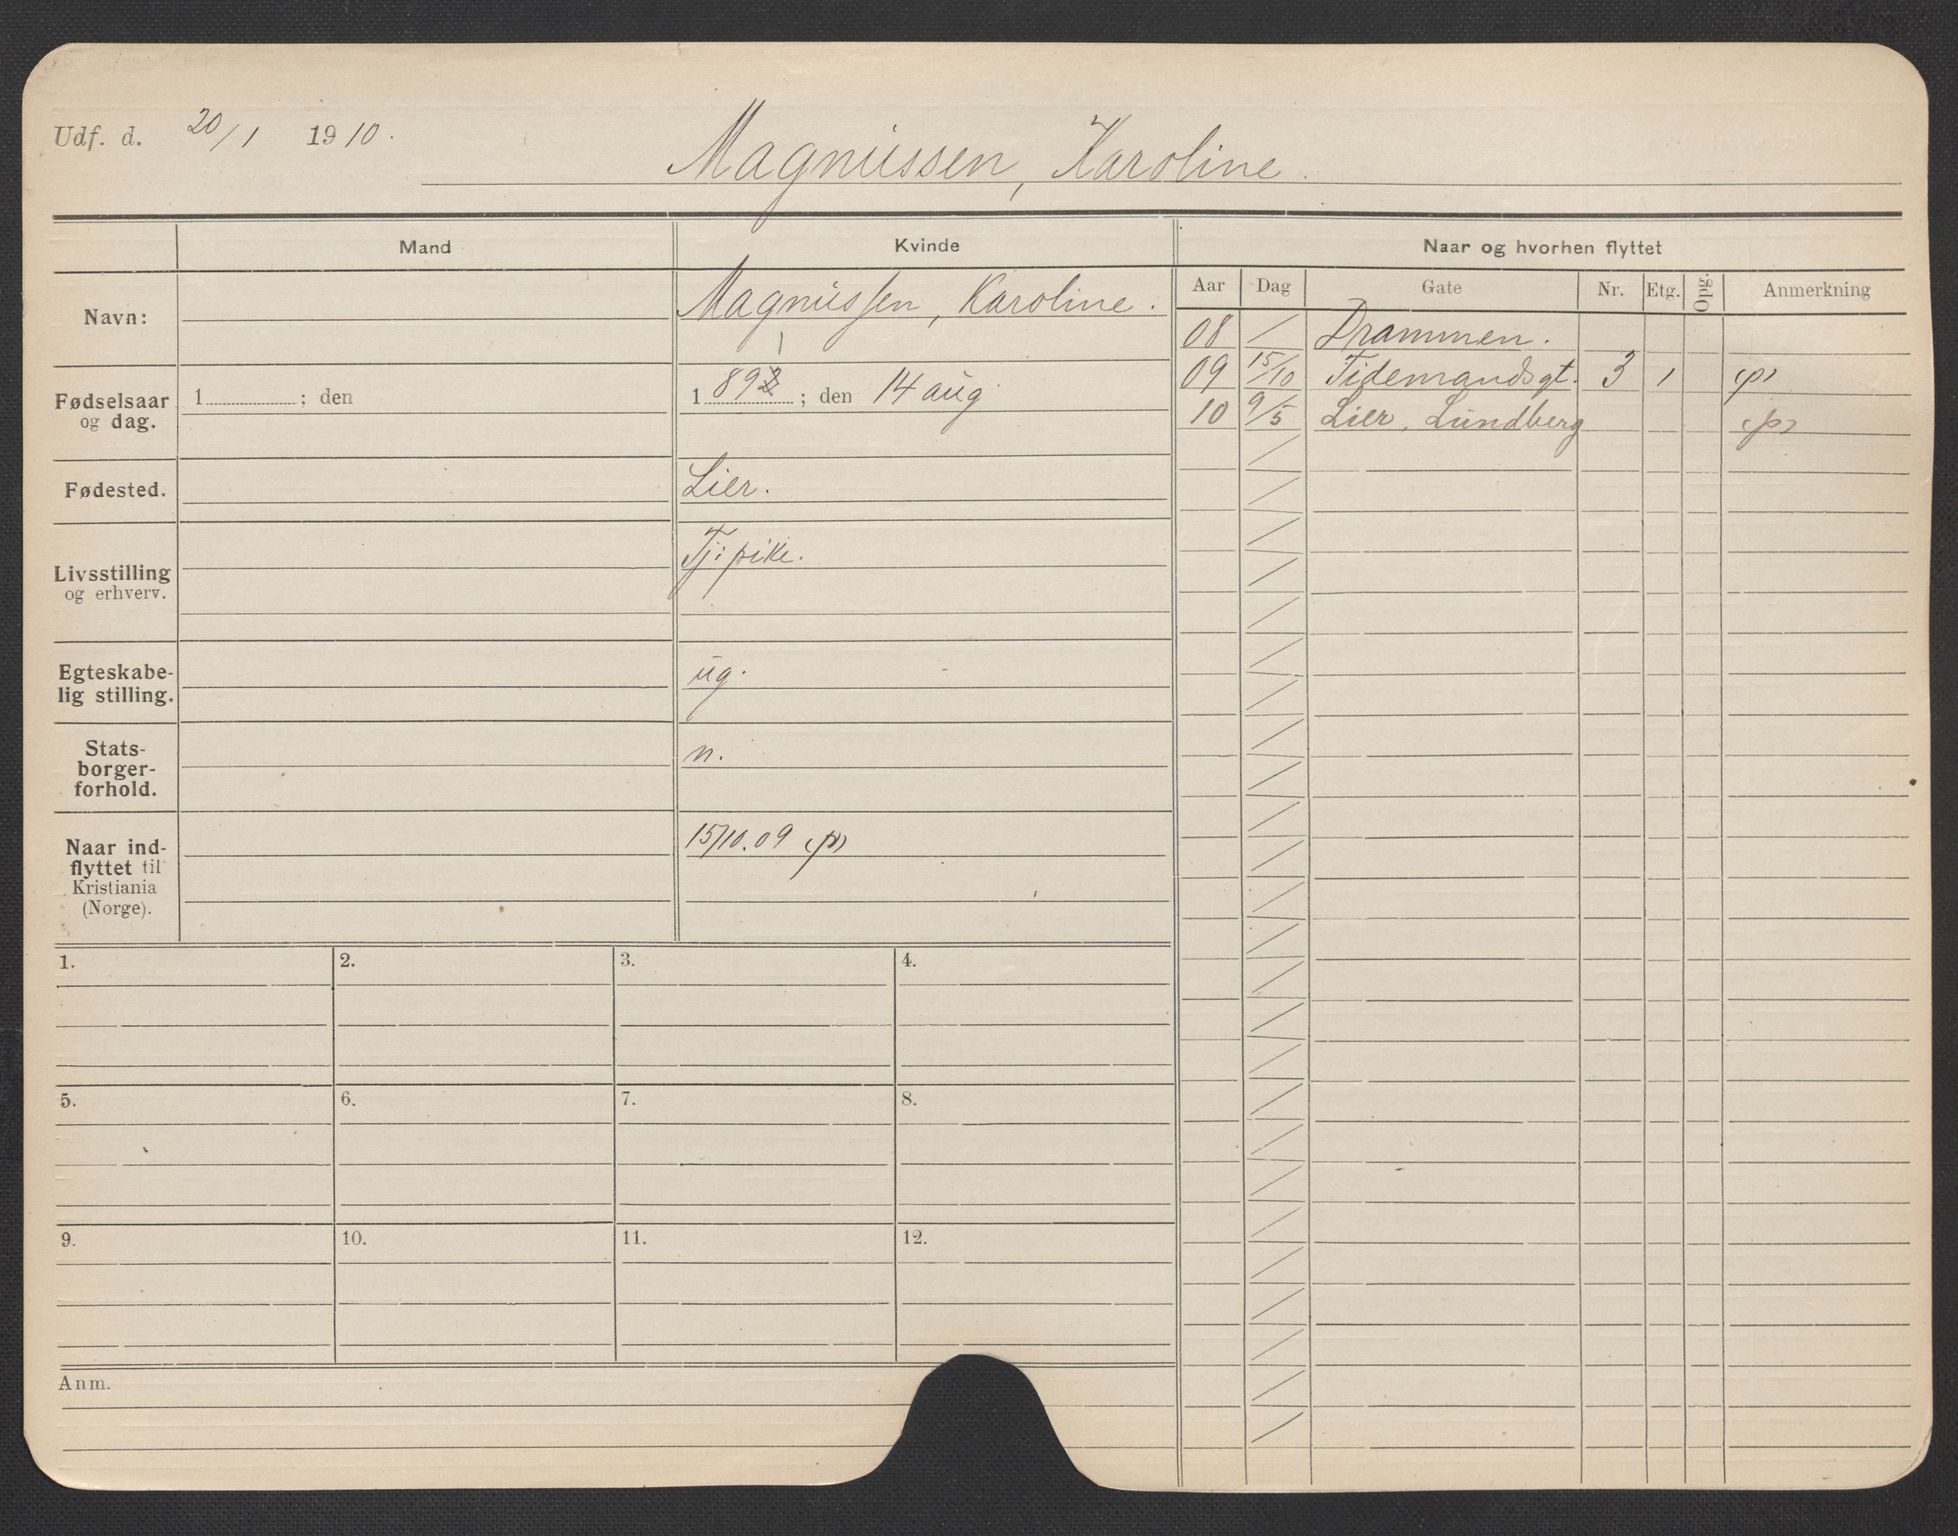 Udf. d. 20/1 1910.
Magnussen, Karoline.
Mand
Kvinde
Naar og hvorhen flyttet
Aar Dag Gate Nr. Etg. Opg. Anmerkning
Navn:
Magnussen, Karoline.
Fødselsaar og dag.
1 ; den
1
1892 ; den 14 aug.
Fødested.
Lier.
Livsstilling og erhverv.
Tj: pike.
Egteskabe-
lig stilling.
ug.
Stats-
borger-
forhold.
n.
Naar ind-
flyttet til
Kristiania
(Norge).
15/10.09 (p)
08 / Drammen.
09 15/10 Tidemandsgt. 3 1 (p)
10 9/5 Lier, Lundberg (p)
1. 2. 3. 4.
5. 6. 7. 8.
9. 10. 11. 12.
Anm.